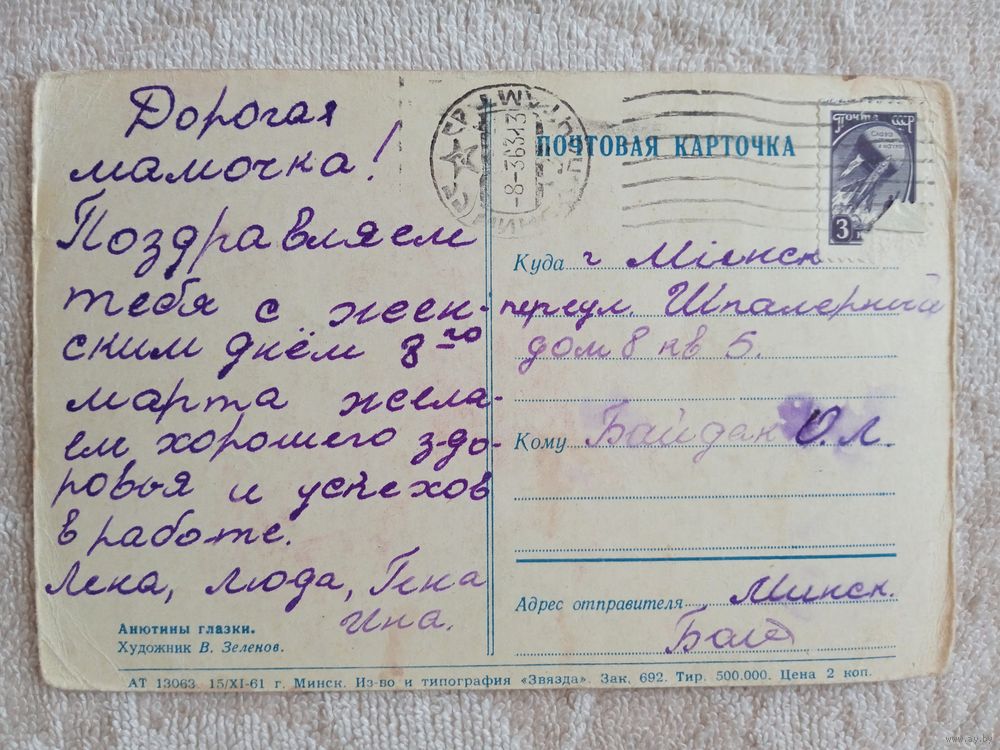 Дорогая
мамочка!
Поздравляем
тебя с жен-
ским днём 8го
марта жела-
ем хорошего здо-
ровья и успехов
в работе.
Лена, Люда, Гена
Ина.
Анютины глазки.
Художник В. Зеленов.
ПОЧТОВАЯ КАРТОЧКА
Почта СССР
Слава
3
МИНСК
Куда г Минск
переул. Шпалерный
дом 8 кв 5.
Кому Байдак О. Л.
Адрес отправителя Минск.
Байд
АТ 13063 15/XI-61 г. Минск. Из-во и типография «Звязда». Зак. 692. Тир. 500.000. Цена 2 коп.
www.ay.by